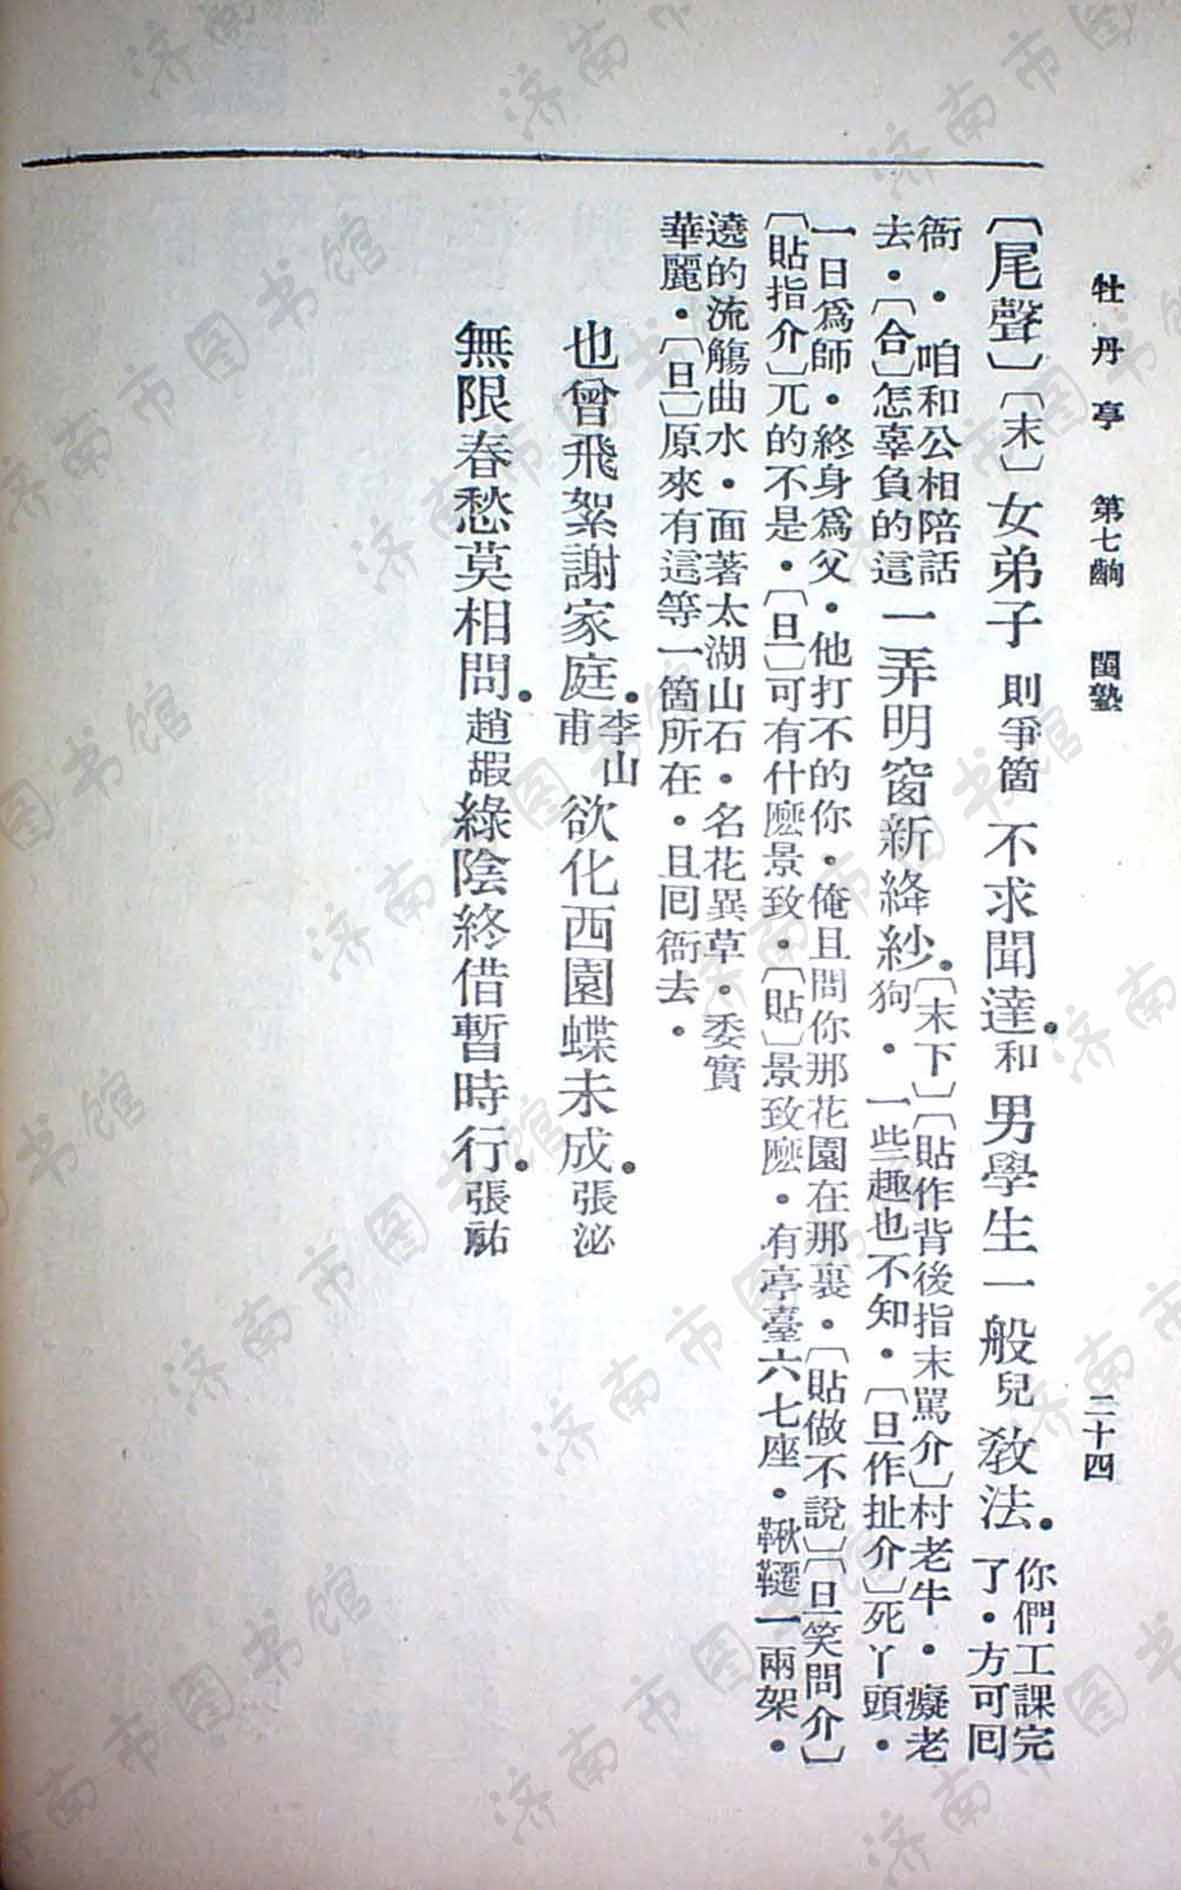 牡丹亭 第七齣 閨塾 二十四
〔尾聲〕〔末〕女弟子則爭箇不求聞達。和男學生一般兒敎法。你們工課完了．方可囘
衙．咱和公相陪話去．〔合〕怎辜負的這一弄明窗新絳紗。〔末下〕〔貼作背後指末罵介〕村老牛．癡老狗．一些趣也不知．〔旦作扯介〕死丫頭．
一日爲師．終身爲父．他打不的你．俺且問你那花園在那裏．〔貼做不說〕〔旦笑問介〕
〔貼指介〕兀的不是．〔旦〕可有什麽景致．〔貼〕景致麽．有亭臺六七座．鞦韆一兩架．
遶的流觴曲水．面著太湖山石．名花異草．委實
華麗．〔旦〕原來有這等一箇所在．且囘衙去．
也曾飛絮謝家庭。李山甫欲化西園蝶未成。張泌
無限春愁莫相問。趙嘏綠陰終借暫時行。張祜
济南市图书馆